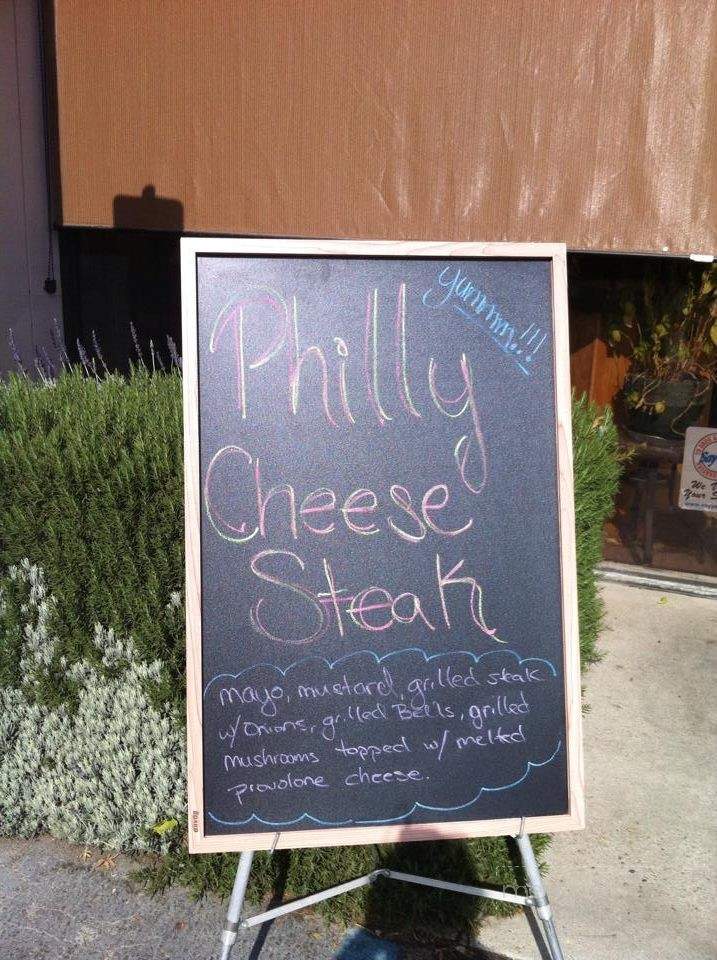 Yummm!!!
Philly
Cheese
Steak
mayo, mustard, grilled steak
w/ onions, grilled Bells, grilled
mushrooms topped w/ melted
provolone cheese.
We
Your